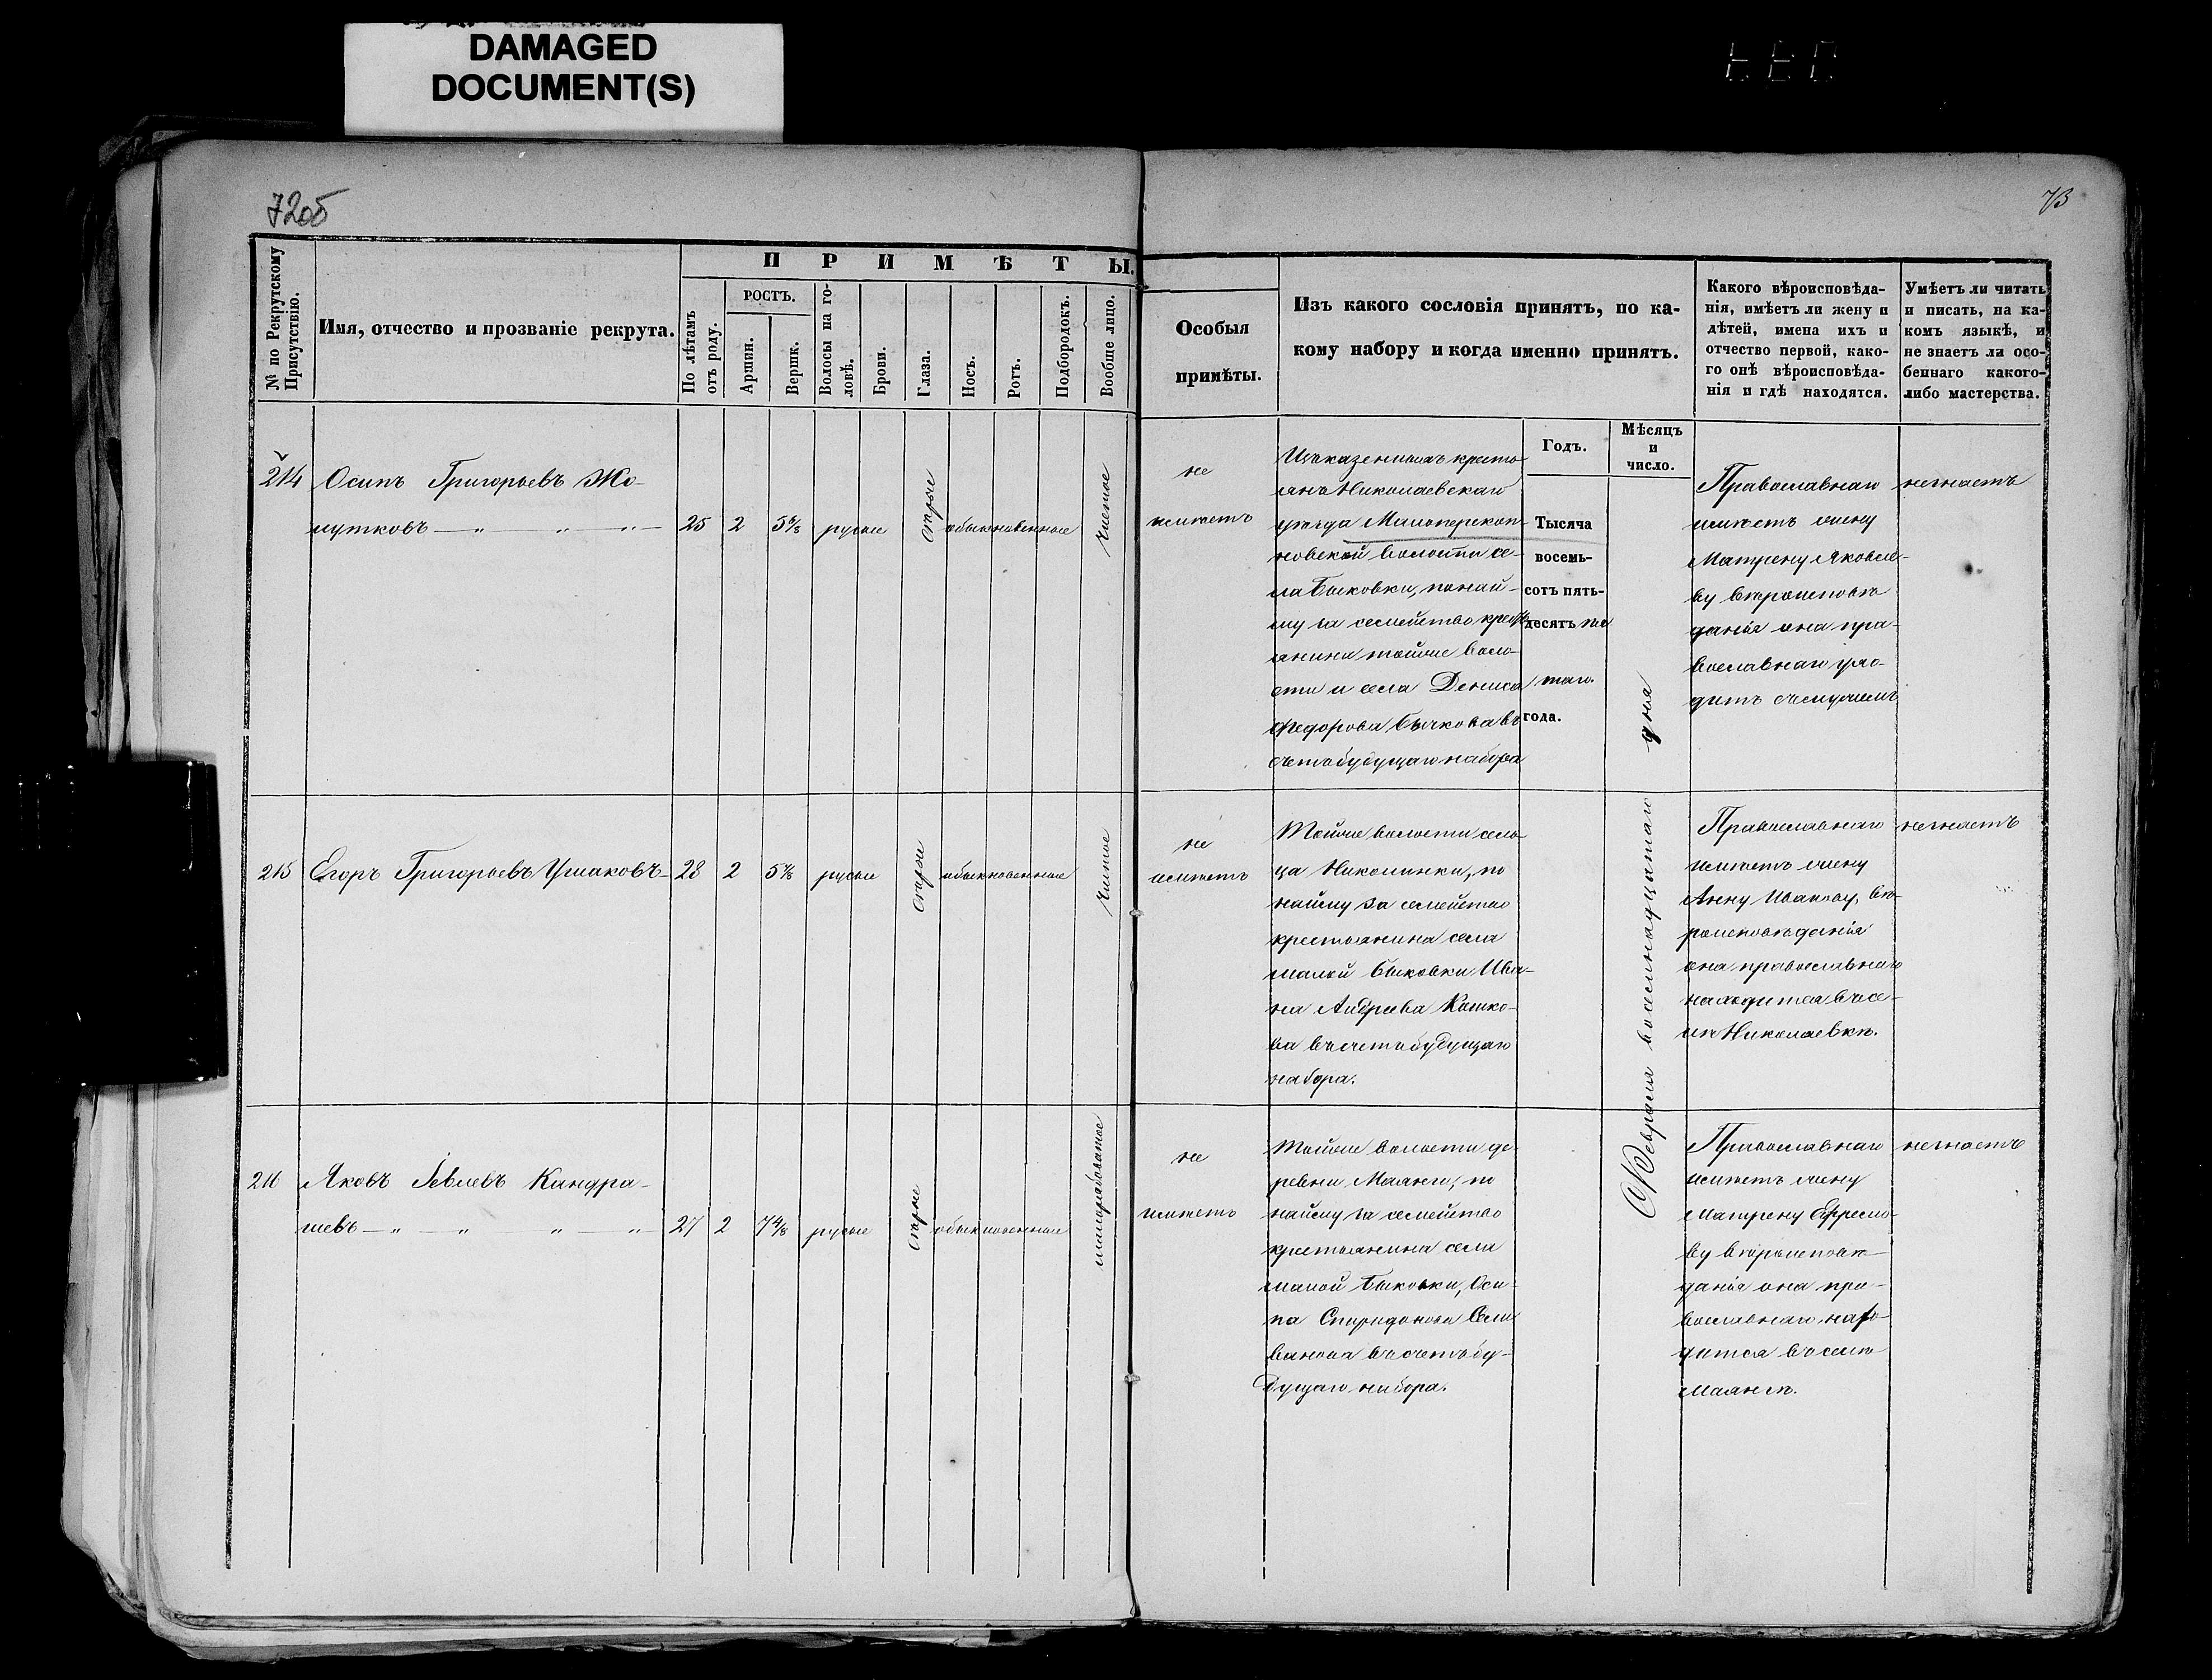 DAMAGED
DOCUMENT(S)
72об
73
№ по Рекрутскому Присутствію.
Имя, отчество и прозваніе рекрута.
ПРИМѢТЫ.
По лѣтамъ отъ роду.
РОСТЪ.
Аршин.
Вершк.
Волосы на головѣ.
Брови.
Глаза.
Носъ.
Ротъ.
Подбородокъ.
Вообще лицо.
Особыя
примѣты.
Изъ какого сословія принятъ, по ка-
кому набору и когда именно принятъ.
Какого вѣроисповѣда-
нія, имѣетъ ли жену и
дѣтей, имена ихъ и
отчество первой, како-
го онѣ вѣроисповѣда-
нія и гдѣ находятся.
Умѣетъ ли читать
и писать, на ка-
комъ языкѣ, и
не знаетъ ли осо-
беннаго какого-
либо мастерства.
Годъ.
Мѣсяцъ
и
число.
214 Осипъ Григорьевъ Хо-
мутковъ — " " " — 25 2 5 русые сѣрые обыкновенные чистое
не
имѣетъ
Изъ казенныхъ кресть-
янъ Николаевскаго
уѣзда Малоперекоп-
новской волости се-
ла Быковки, по най-
му за семейство крест
янина тойже воло-
сти и села Дениса
Федорова Бычкова въ
счетъ будущаго набора
Тысяча
восемь-
сотъ пять-
десятъ пя
таго
года.
Февраля восемнадцатаго дня
Православнаго
имѣетъ жену
Матрену Яковле-
ву вѣроисповѣ
данія она пра-
вославнаго
съ мужемъ
незнаетъ
215 Егоръ Григорьевъ Ушаковъ 28 2 5 русые сѣрые обыкновенные чистое
не
имѣетъ
Тойже волости сель-
ца Николинки, по
найму за семейство
крестьянина села
малой Быковки Ива-
на Андреева Кошко-
ва въ счетъ будущаго
набора.
Православнаго
имѣетъ жену
Анну Иванову, вѣ-
роисповѣданія
она православнаго
находится въ се-
лѣ Николаевкѣ.
незнаетъ
216 Яковъ Кандра-
шевъ — " — " " — " 27 2 7 4/8 русые сѣрые обыкновенные шадроватое
не
имѣетъ
Тойже волости де-
ревни Маянги, по
найму за семейство
крестьянина села
малой Быковки, Оси-
па Спиридонова Сели
ванова въ счетъ бу-
дущаго набора.
Православнаго
имѣетъ жену
Матрену Ефремо-
ву вѣроисповѣ-
данія она пра-
вославнаго, нахо-
дится въ селѣ
Маянгѣ.
незнаетъ